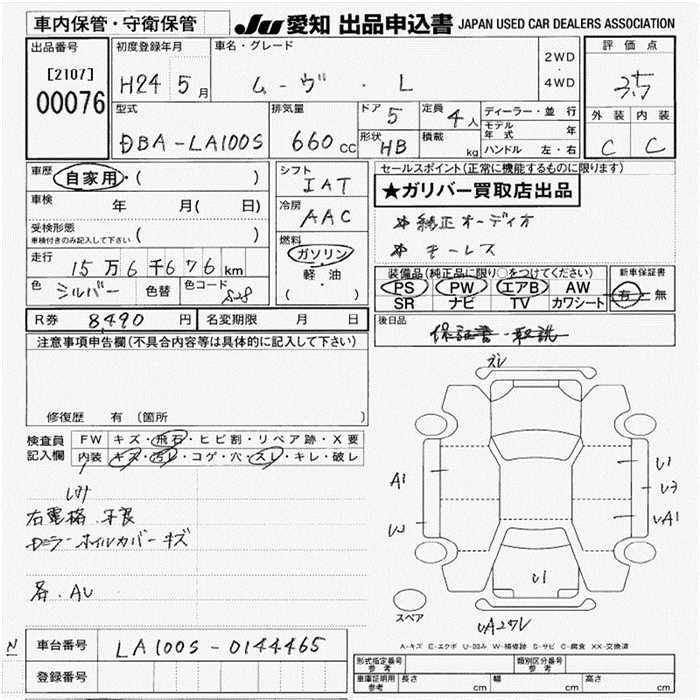 車内保管・守衛保管
JU 愛知 出品申込書 JAPAN USED CAR DEALERS ASSOCIATION
出品番号
[2107]
00076
初度登録年月
H24 5月
車名・グレード
ムーヴ・L
2WD
・
4WD
評価点
3.5
外装 内装
C C
型式
DBA-LA100S
排気量
660cc
ドア 5
形状 HB
定員 4人
積載 kg
ディーラー・並行
モデル年式 年
ハンドル 左・右
車歴 自家用・( )
車検 年 月( 日)
受検形態
車検付きのみ記入して下さい ( )
走行 15万6千676km
色 シルバー 色替 色コード S28
シフト
IAT
冷房
AAC
燃料
ガソリン
・
軽・油
( )
セールスポイント(正常に機能するものに限ります)
★ガリバー買取店出品
☆純正オーディオ
☆キーレス
装備品(純正品に限り○をつけてください)
PS PW エアB AW
SR ナビ TV カワシート
新車保証書
有・無
R券 8,490円 名変期限 月 日
後日品
保証書 取説
注意事項申告欄(不具合内容等は具体的に記入して下さい)
修復歴 有 〔箇所
検査員
記入欄
FW キズ・飛石・ヒビ割・リペア跡・X要
内装 キズ・汚レ・コゲ・穴・スレ・キレ・破レ
右電格 不良
Dミラー ホイルカバー キズ
各. AU
ズレ
A1
W
U1
U3
UA1
U1
スペア
UA2ズレ
A-キズ E-エクボ U-凹み W-補修跡 S-サビ C-腐食 XX-交換済
N
車台番号 LA100S-0144465
登録番号
形式指定番号
参考
類別区分番号
参考
車庫証明用
参考
長さ cm 幅 cm 高さ cm